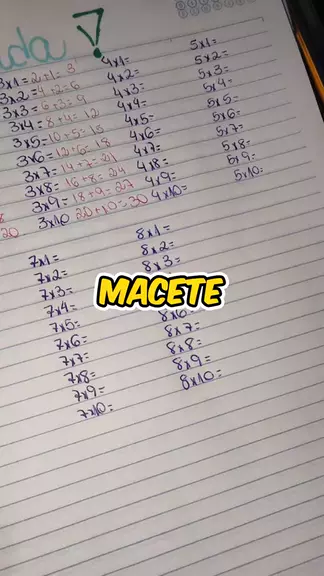 da ?
3x1= 2+1= 3
3x2= 4+2= 6
3x3= 6+3= 9
3x4= 8+4= 12
3x5= 10+5= 15
3x6= 12+6= 18
3x7= 14+7= 21
3x8= 16+8= 24
3x9= 18+9= 27
3x10 20+10= 30
20
4x1=
4x2=
4x3=
4x4=
4x5=
4x6=
4x7=
4x8=
4x9=
4x10=
5x1=
5x2=
5x3=
5x4=
5x5=
5x6=
5x7=
5x8=
5x9=
5x10=
7x1=
7x2=
7x3=
7x4=
7x5=
7x6=
7x7=
7x8=
7x9=
7x10=
8x1=
8x2=
8x3=
MACETE
8x6=
8x7=
8x8=
8x9=
8x10=